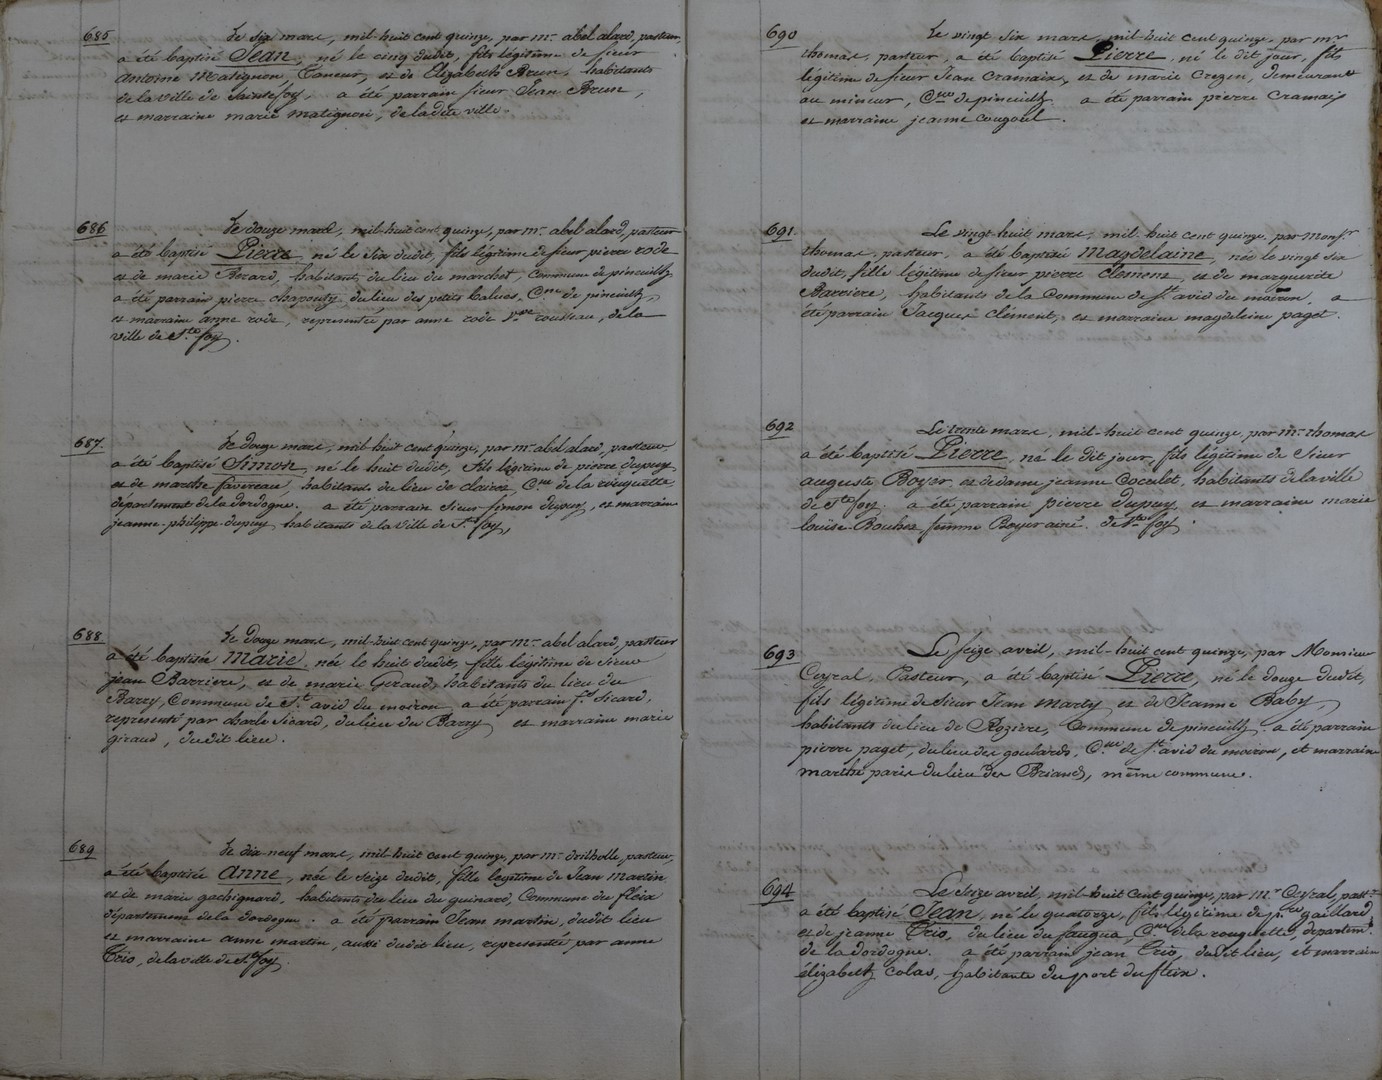 685
Le six mars, mil-huit cent quinze, par mr. abel alard, pasteur,
a été baptisé Jean, né le cinq dudit, fils légitime de sieur
antoine Matignon, Taneur, et de Elizabeth Brun, habitants
de la ville de Saintefoy, a été parrain sieur Jean Brun,
et marraine marie matignon, de ladite ville.
686
Le douze mars, mil-huit cent quinze, par mr. abel alard, pasteur
a été baptisé Pierre, né le six dudit, fils légitime de sieur pierre rode
et de marie Berard, habitant du lieu du marchet commune de pineuilh,
a été parrain pierre chapouty du lieu des petits balues, Cne. de pineuilh,
et marraine anne rode, representée par anne rode Vve rousseau, de la
ville de Ste foy.
687
Le douze mars, mil-huit cent quinze, par mr. abel alard, pasteur
a été baptisé Simon, né le huit dudit, fils légitime de pierre dupuy
et de marthe favereau, habitants du lieu de clairis, Cne de la rouquette
département de la dordogne. a été parrain sieur simon dupuy, et marraine
jeanne-philippe dupuy habitants de la ville de Ste foy,
688
Le douze mars, mil-huit cent quinze, par mr. abel alard, pasteur
a été baptisée Marie, née le huit dudit, fille légitime de sieur
jean Barriere, et de marie Geraud, habitants du lieu du
Barry, Commune de St. avid du moiron, a été parrain fs. Sicard,
representé par charle Sicard, du lieu du Barry et marraine marie
giraud, dudit lieu.
689
Le dix-neuf mars, mil-huit cent quinze, par mr. drilholle, pasteur,
a été baptisée Anne, née le seize dudit, fille légitime de Jean Martin
et de marie gachignard, habitants du lieu du guinard, Commune du fleix
département de la Dordogne. a été parrain Jean martin, dudit lieu
et marraine anne martin, aussi dudit lieu, representée par anne
Trio, de la ville de Ste foy.
690
Le vingt six mars, mil-huit cent quinze, par mr
thomas, pasteur, a été baptisé Pierre, né le dit jour, fils
légitime de sieur Jean Cramaix, et de marie Crezen, demeurant
au mineur, Cne de pineuilh a été parrain pierre Cramaix
et marraine jeanne cougoul.
691
Le vingt huit mars, mil-huit cent quinze, par monsr.
thomas, pasteur, a été baptisé Magdelaine, née le vingt six
dudit, fille légitime de sieur pierre clement et de marguerite
Barriere, habitants de la Commune de St. avid du moiron, a
été parrain Jacques clément, et marraine magdelaine paget.
692
Le trente mars, mil-huit cent quinze, par mr. thomas
a été baptisé Pierre, né le dit jour, fils légitime de Sieur
auguste Boyer et de dame jeanne Coculet, habitants de la ville
de Ste foy. a été parrain pierre dupuy, et marraine marie
louise Bouhez femme Boyer ainé. de Ste foy.
693
Le seize avril, mil-huit cent quinze, par Monsieur
Ceyral, Pasteur, a été baptisé Pierre, né le douze dudit,
fils légitime de sieur Jean Marty et de Jeanne Baby,
habitants du lieu de Rozière, Commune de pineuilh. a été parrain
pierre paget, du lieu des goulards, Cne. de St. avid du moiron, et marraine
marthe paris du lieu des Briands, même commune.
694
Le seize avril, mil-huit cent quinze, par Mr Ceyral, past.
a été baptisé Jean, né le quatorze, fils légitime de prre gaillard
et de jeanne Trio, du lieu du fauga, Cne de la rouquette, départem.t
de la dordogne. a été parrain jean Trio, dudit lieu, et marraine
élizabeth Colas, habitante du port du fleix.